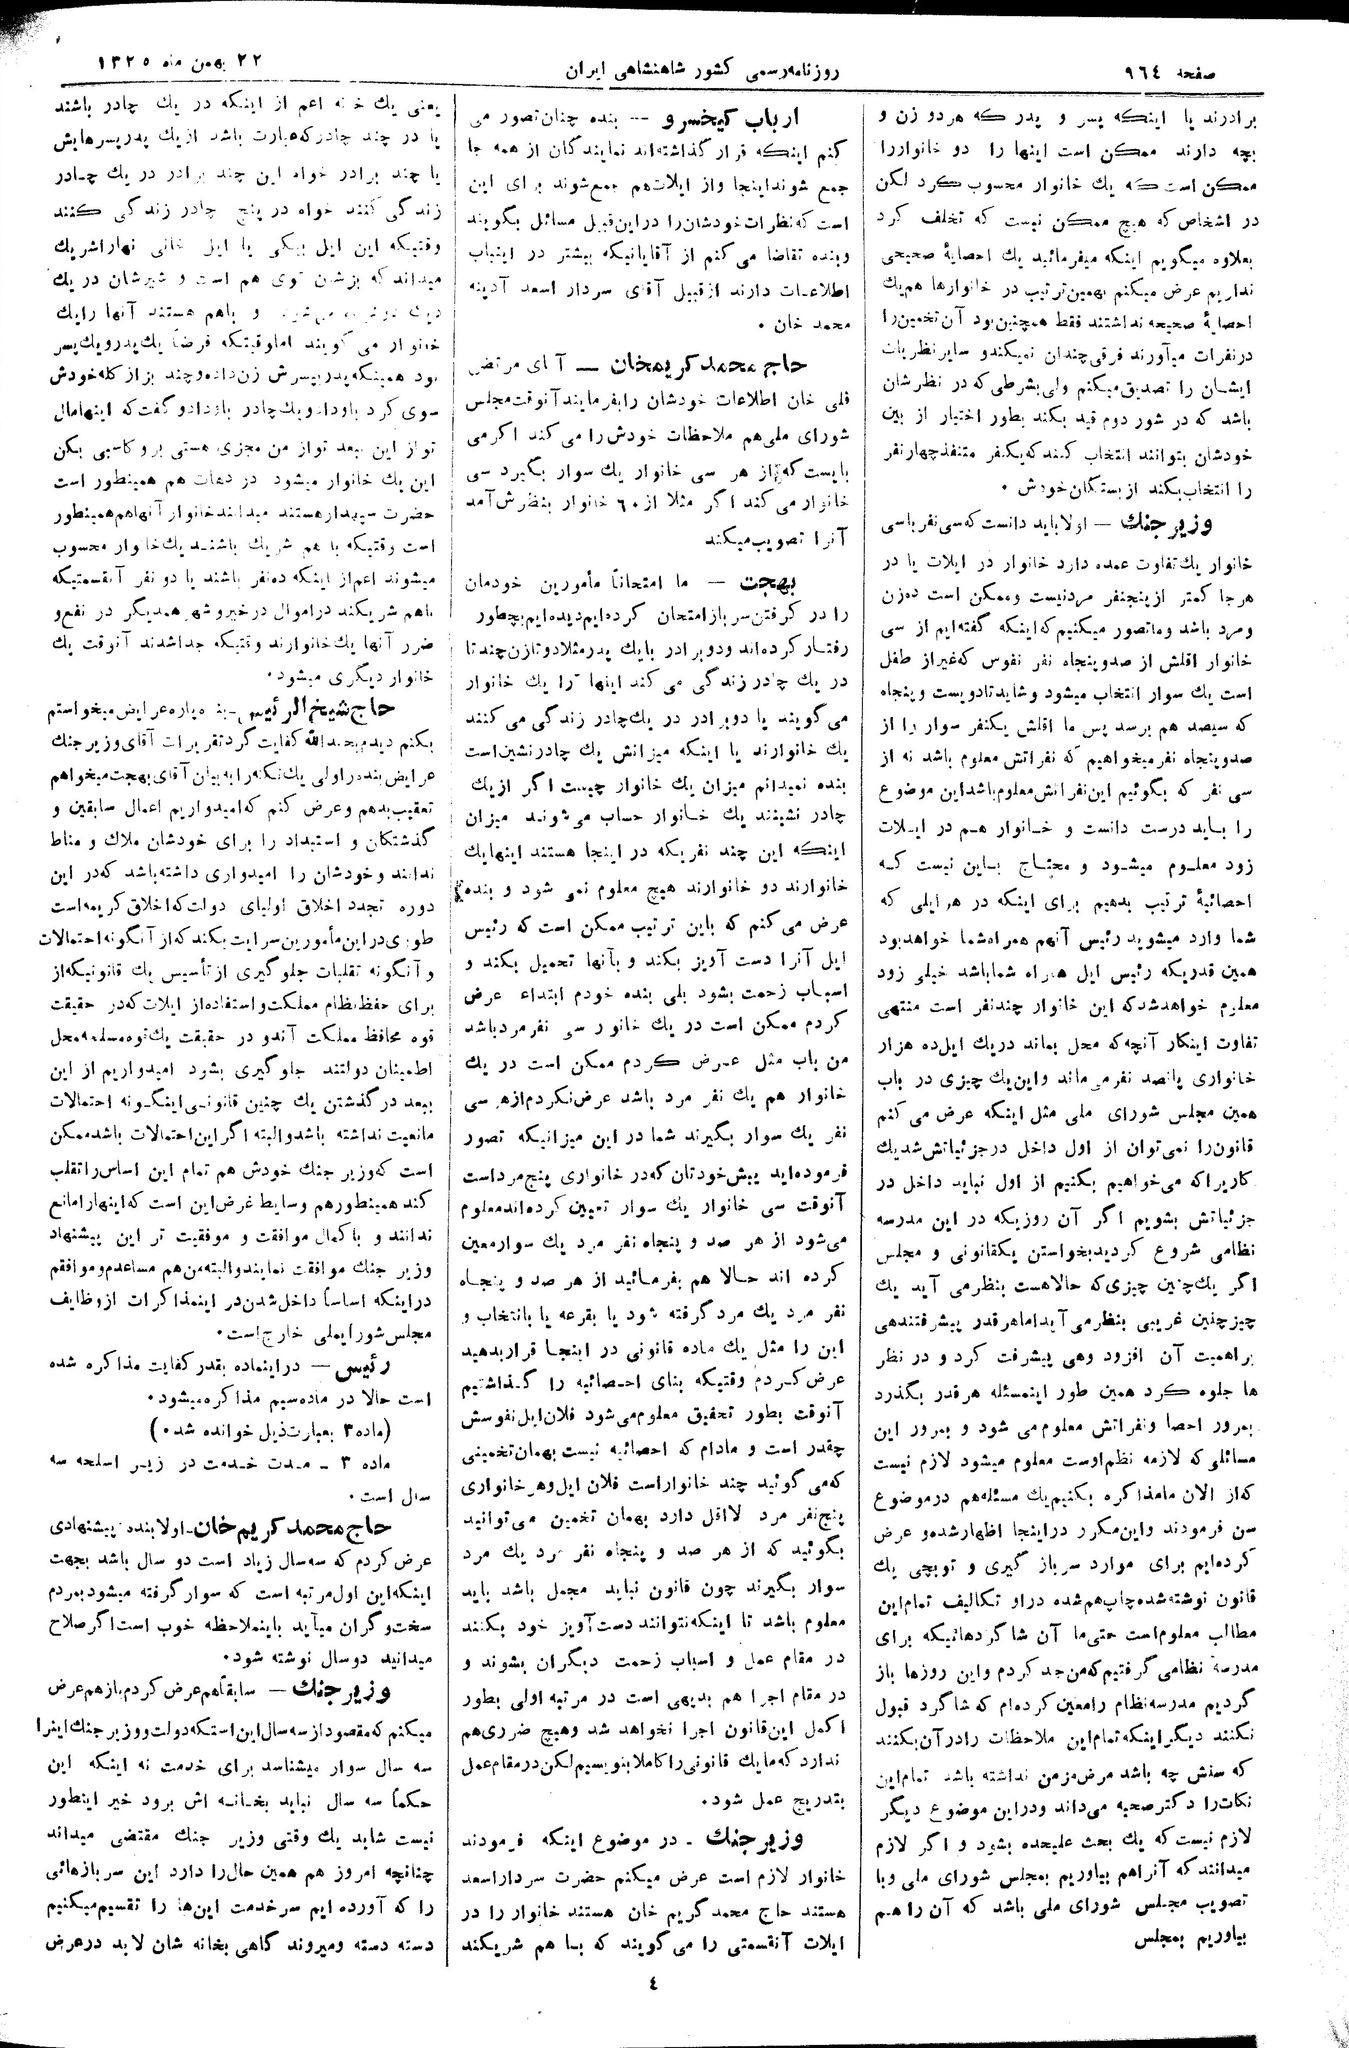 صفحه ۹٦٤
روزنامه رسمی کشور شاهنشاهی ایران
۲۲ بهمن ماه ۱۳۲٥
برادرند یا اینکه پسر و پدر که هردو زن و
بچه دارند ممکن است اینها را دو خانواررا
ممکن است که یك خانوار محسوب کرد لکن
در اشخاص که هیچ ممکن نیست که تخلف کرد
بعلاوه میگویم اینکه میفرمائید یك احصایهٔ صحیحی
نداریم عرض میکنم بهمین ترتیب در خانوارها هم یك
احصایهٔ صحیحه نداشتند فقط همچنین بود آن تخمین را
در نفرات میآورند فرقی چندان نمیکند و سایر نظریات
ایشان را تصدیق میکنم ولی بشرطی که در نظرشان
باشد که در شور دوم قید بکند بطور اختیار از بین
خودشان بتوانند انتخاب کنند که یکنفر متنفذ چهار نفر
را انتخاب بکند از بستگان خودش ۰
وزیر جنك – اولا باید دانست که سی نفر باسی
خانوار یك تفاوت عمده دارد خانوار در ایلات یا در
هرجا کمتر از پنجنفر مرد نیست و ممکن است ده زن
و مرد باشد و ما تصور میکنیم که اینکه گفته ایم از سی
خانوار اقلش از صدوپنجاه نفر نفوس که غیر از طفل
است یك سوار انتخاب میشود و شاید تا دویست و پنجاه
که سیصد هم برسد پس ما اقلش یکنفر سوار را از
صدوپنجاه نفر میخواهیم که نفراتش معلوم باشد نه از
سی نفر که بگوئیم این نفراتش معلوم باشد این موضوع
را باید درست دانست و خانوار هم در ایلات
زود معلوم میشود و محتاج باین نیست که
احصائیهٔ ترتیب بدهیم برای اینکه در هر ایلی که
شما وارد میشوید رئیس آنهم همراه شما خواهد بود
همین قدریکه رئیس ایل همراه شما باشد خیلی زود
معلوم خواهد شد که این خانوار چند نفر است منتهی
تفاوت اینکار آنچه که محل بماند دریك ایل ده هزار
خانواری پانصد نفر می ماند و این یك چیزی در باب
همین مجلس شورای ملی مثل اینکه عرض می کنم
قانون را نمی توان از اول داخل در جزئیاتش شد یك
کاریرا که می خواهیم بکنیم از اول نباید داخل در
جزئیاتش بشویم اگر آن روزیکه در این مدرسه
نظامی شروع کردید بخواستن یکقانونی و مجلس
اگر یك چنین چیزی که حالا هست بنظر می آید یك
چیز چنین غریبی بنظر می آید اما هر قدر پیشرفتند هی
بر اهمیت آن افزود وهی پیشرفت کرد و در نظر
ها جلوه کرد همین طور اینمسئله هر قدر بگذرد
بمرور احصا ونفراتش معلوم می شود و بمرور این
مسائلی که لازمه نظم اوست معلوم میشود لازم نیست
که از الان ما مذاکره بکنیم یك مسئله هم در موضوع
سن فرمودند واین مکرر در اینجا اظهار شده و عرض
کرده ایم برای موارد سرباز گیری و توپچی یك
قانون نوشته شده چاپ هم شده در او تکالیف تمام این
مطالب معلوم است حتی ما آن شاگردهائیکه برای
مدرسه نظامی گرفتیم که من جد کردم و این روزها باز
کردیم مدرسه نظام را معین کرده ام که شاگرد قبول
نکنند دیگر اینکه تمام این ملاحظات را در آن بکنند
که سنش چه باشد مرض مزمن نداشته باشد تمام این
نکات را دکتر صحیه می داند و در این موضوع دیگر
لازم نیست که یك بحث علیحده بشود و اگر لازم
میدانند که آنرا هم بیاوریم بمجلس شورای ملی و با
تصویب مجلس شورای ملی باشد که آن را هم
بیاوریم بمجلس
ارباب کیخسرو – بنده چنان تصور می
کنم اینکه قرار گذاشته اند نمایندگان از همه جا
جمع شوند اینجا واز ایلات هم جمع شوند برای این
است که نظرات خودشان را در این قبیل مسائل بگویند
وبنده تقاضا می کنم از آقایانیکه بیشتر در اینباب
اطلاعات دارند از قبیل آقای سردار اسعد آدینه
محمد خان ۰
حاج محمد کریمخان – آقای مرتضی
قلی خان اطلاعات خودشان را بفرمایند آنوقت مجلس
شورای ملی هم ملاحظات خودش را می کند اگر می
بایست که از هر سی خانوار یك سوار بگیرد سی
خانوار می کند اگر مثلا از ٦۰ خانوار بنظرش آمد
آنرا تصویب میکند
بهجت – ما امتحاناً مأمورین خودمان
را در گرفتن سرباز امتحان کرده ایم دیده ایم بچطور
رفتار کرده اند ودو برادر بایك پدر مثلا دو تا زن چند تا
در یك چادر زندگی می کند اینها را یك خانوار
می گویند یا دو برادر در یك چادر زندگی می کنند
یك خانوارند یا اینکه میزانش یك چادر نشین است
بنده نمیدانم میزان یك خانوار چیست اگر از یك
چادر نشینند یك خانوار حساب می شوند میزان
اینکه این چند نفریکه در اینجا هستند اینها یك
خانوارند دو خانوارند هیچ معلوم نمی شود و بنده
عرض می کنم که باین ترتیب ممکن است که رئیس
ایل آنرا دست آویز بکند و بآنها تحمیل بکند و
اسباب زحمت بشود بلی بنده خودم ابتداء عرض
کردم ممکن است در یك خانوار سی نفر مرد باشد
من باب مثل عرض کردم ممکن است در یك
خانوار هم یك نفر مرد باشد عرض نکردم از هر سی
نفر یك سوار بگیرند شما در این میزانیکه تصور
فرموده اید پیش خودتان که در خانواری پنج مرد است
آنوقت سی خانوار یك سوار تعیین کرده اند معلوم
می شود از هر صد و پنجاه نفر مرد یك سوار معین
کرده اند حالا هم بفرمائید از هر صد و پنجاه
نفر مرد یك مرد گرفته شود یا بقرعه یا بانتخاب و
این را مثل یك ماده قانونی در اینجا قرار بدهید
عرض کردم وقتیکه بنای احصائیه را گذاشتیم
آنوقت بطور تحقیق معلوم می شود فلان ایل نفوسش
چقدر است و مادام که احصائیه نیست بهمان تخمینی
که می گوئید چند خانوار است فلان ایل و هر خانواری
پنج نفر مرد لااقل دارد بهمان تخمین می توانید
بگوئید که از هر صد و پنجاه نفر مرد یك مرد
سوار بگیرند چون قانون نباید مجمل باشد باید
معلوم باشد تا اینکه نتوانند دست آویز خود بکنند
در مقام عمل و اسباب زحمت دیگران بشوند و
در مقام اجرا هم بدیهی است در مرتبه اولی بطور
اکمل این قانون اجرا نخواهد شد وهیچ ضرری هم
ندارد که ما یك قانونی را کاملا بنویسیم لکن در مقام عمل
بتدریج عمل شود۰
وزیر جنك ـ در موضوع اینکه فرمودند
خانوار لازم است عرض میکنم حضرت سردار اسعد
هستند حاج محمد کریم خان هستند خانوار را در
ایلات آنقسمتی را می گویند که با هم شریکند
یعنی یك خانه اعم از اینکه در یك چادر باشند
یا در چند چادر که عبارت باشد از یك پدر پسرهایش
یا چند برادر خواه این چند برادر در یك چادر
زندگی کنند خواه در پنج چادر زندگی کنند
وقتیکه این ایل بیگی یا ایل خانی نهار اشریك
میداند که بزشان توی هم است و شیرشان در یك
دیك می شود و باهم هستند آنها را یك
خانوار می گویند اما وقتیکه فرضاً یك پدر و یك پسر
بود همینکه پدر پسرش زن داده و چند بز از کله خودش
سوی کرد باو داد و یك چادر باو داد و گفت که اینها مال
تو از این ببعد تو از من مجزی هستی برو کاسبی بکن
این یك خانوار میشود در دهات هم همینطور است
حضرت سپهدار هستند میدانند خانوار آنها هم همینطور
است وقتیکه با هم شریك باشند یك خانوار محسوب
میشوند اعم از اینکه ده نفر باشند یا دو نفر آنقسمتیکه
باهم شریکند در اموال در خیر و شر همدیگر در نفع و
ضرر آنها یك خانوارند وقتیکه جدا شدند آنوقت یك
خانوار دیگری میشود۰
حاج شیخ الرئیس – بنده پاره عرایض میخواستم
بکنم دیدم بحمدالله کفایت کرد تقریرات آقای وزیر جنك
عرایض بنده در اولی یك نکته را به بیان آقای بهجت میخواهم
تعقیب بدهم وعرض کنم که امیدواریم اعمال سابقین و
گذشتگان و استبداد را برای خودشان ملاك و مناط
ندانند و خودشان را امیدواری داشته باشد که در این
دوره تجدد اخلاق اولیای دولت که اخلاق کریمه است
طوری در این مأمورین سرایت بکند که از آنگونه احتمالات
و آنگونه تقلبات جلوگیری از تأسیس یك قانونیکه از
برای حفظ نظام مملکت و استفاده از ایلات که در حقیقت
قوه محافظ مملکت آندو در حقیقت یك قوه مسلحه محل
اطمینان دولتند جلوگیری بشود امیدواریم از این
ببعد در گذشتن یك چنین قانونی اینگونه احتمالات
مانعیت نداشته باشد والبته اگر این احتمالات باشد ممکن
است که وزیر جنك خودش هم تمام این اساس را تقلب
کند همینطور هم وسایط غرض این است که اینهارا مانع
ندانند و با کمال موافقت و موفقیت تر این پیشنهاد
وزیر جنك موافقت نمایند والبته من هم مساعدم و موافقم
در اینکه اساساً داخل شدن در اینمذاکرات از وظایف
مجلس شورایملی خارج است۰
رئیس – در اینماده بقدر کفایت مذاکره شده
است حالا در ماده سیم مذاکره میشود۰
(ماده۳ بعبارت ذیل خوانده شد۰)
ماده ۳ ـ مدت خدمت در زیر اسلحه سه
سال است۰
حاج محمد کریم خان ـ اولا بنده پیشنهادی
عرض کردم که سه سال زیاد است دو سال باشد بجهت
اینکه این اول مرتبه است که سوار گرفته میشود بمردم
سخت و گران میآید باینملاحظه خوب است اگر صلاح
میدانید دوسال نوشته شود۰
وزیر جنك – سابقاً هم عرض کردم باز هم عرض
میکنم که مقصود از سه سال این استکه دولت و وزیر جنك اینرا
سه سال سوار میشناسد برای خدمت نه اینکه این
حکماً سه سال نباید بخانه اش برود خیر اینطور
نیست شاید یك وقتی وزیر جنك مقتضی میداند
چنانچه امروز هم همین حال را دارد این سربازهائی
را که آورده ایم سر خدمت این ها را تقسیم میکنیم
دسته دسته و میروند گاهی بخانه شان لابد در عرض
٤